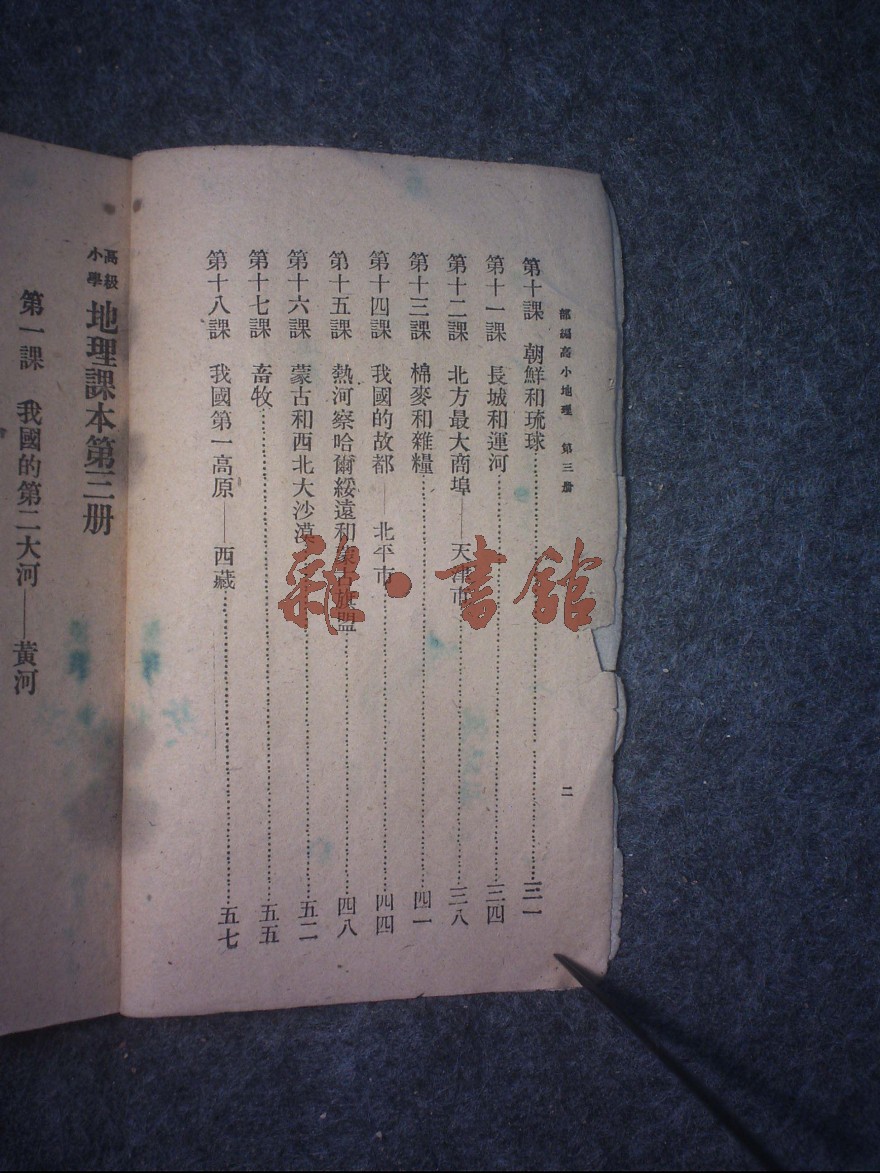 部編高小地理　第三册
二
第十課　朝鮮和琉球……三一
第十一課　長城和運河……三四
第十二課　北方最大商埠——天津市……三八
第十三課　棉麥和雜糧……四一
第十四課　我國的故都——北平市……四四
第十五課　熱河察哈爾綏遠和蒙古旗盟……四八
第十六課　蒙古和西北大沙漠……五二
第十七課　畜牧……五五
第十八課　我國第一高原——西藏……五七
高級小學　地理課本第三册
第一課　我國的第二大河——黃河
雜·書館